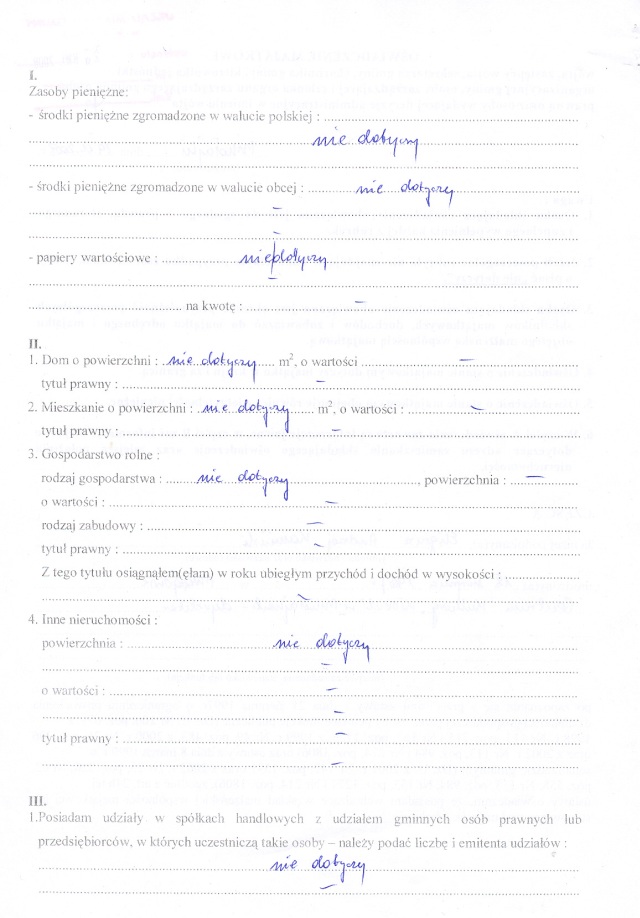 I.
Zasoby pieniężne:
- środki pieniężne zgromadzone w walucie polskiej : ....................
nie dotyczy
- środki pieniężne zgromadzone w walucie obcej : ........ nie dotyczy
–
–
- papiery wartościowe : ........ nie dotyczy
–
........ na kwotę : ........ –
II.
1. Dom o powierzchni : nie dotyczy m², o wartości ........ –
tytuł prawny : ........ –
2. Mieszkanie o powierzchni : nie dotyczy m², o wartości : ........ –
tytuł prawny : ........ –
3. Gospodarstwo rolne :
rodzaj gospodarstwa : ........ nie dotyczy ........, powierzchnia : .... –
o wartości : ........ –
rodzaj zabudowy : ........ –
tytuł prawny : ........ –
Z tego tytułu osiągnąłem(ęłam) w roku ubiegłym przychód i dochód w wysokości : ........
–
4. Inne nieruchomości :
powierzchnia : ........ nie dotyczy
–
o wartości : ........ –
–
tytuł prawny : ........ –
–
III.
1.Posiadam udziały w spółkach handlowych z udziałem gminnych osób prawnych lub
przedsiębiorców, w których uczestniczą takie osoby – należy podać liczbę i emitenta udziałów :
nie dotyczy
–